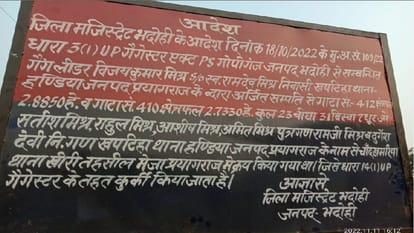 आदेश
जिला मजिस्ट्रेट भदोही के आदेश दिनांक 18/10/2022 के मु.अ.सं. 103/22
धारा 3(1) UP गैंगेस्टर एक्ट PS गोपीगंज जनपद भदोही से सम्बन्धित
गैंग लीडर विजय कुमार मिश्र S/o स्व. रामदेव मिश्र निवासी खपटिहा थाना-
हण्डिया जनपद प्रयागराज के द्वारा अर्जित सम्पत्ति से गाटा सं- 412
2.8850 हे. व गाटा सं. 410 क्षेत्रफल 2.7330 हे. कुल 23 बीघा 31 बिस्वा
सतीश मिश्र, राहुल मिश्र, आशीष मिश्र, अमित मिश्र पुत्रगण रामजी मिश्र व
देवी नि.गण खपटिहा थाना हण्डिया जनपद प्रयागराज के नाम से
थाना खीरी तहसील मेजा प्रयागराज से क्रय किया गया था। जिसे धारा 14(1) UP
गैंगेस्टर के तहत कुर्की किया जाता है।
आज्ञा से
जिला मजिस्ट्रेट भदोही
जनपद भदोही
2022.11.11 16:12